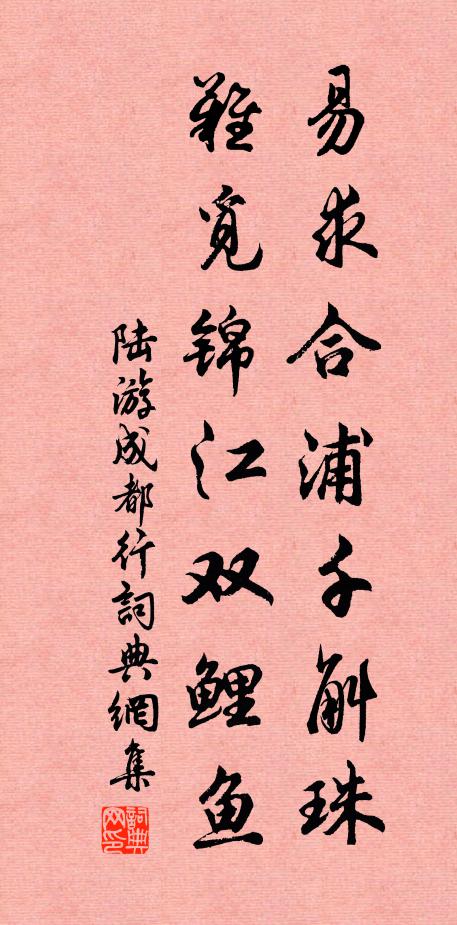 易求合浦千斛珠
难觅锦江双鲤鱼
陆游成都行詞典網集
詞典网印